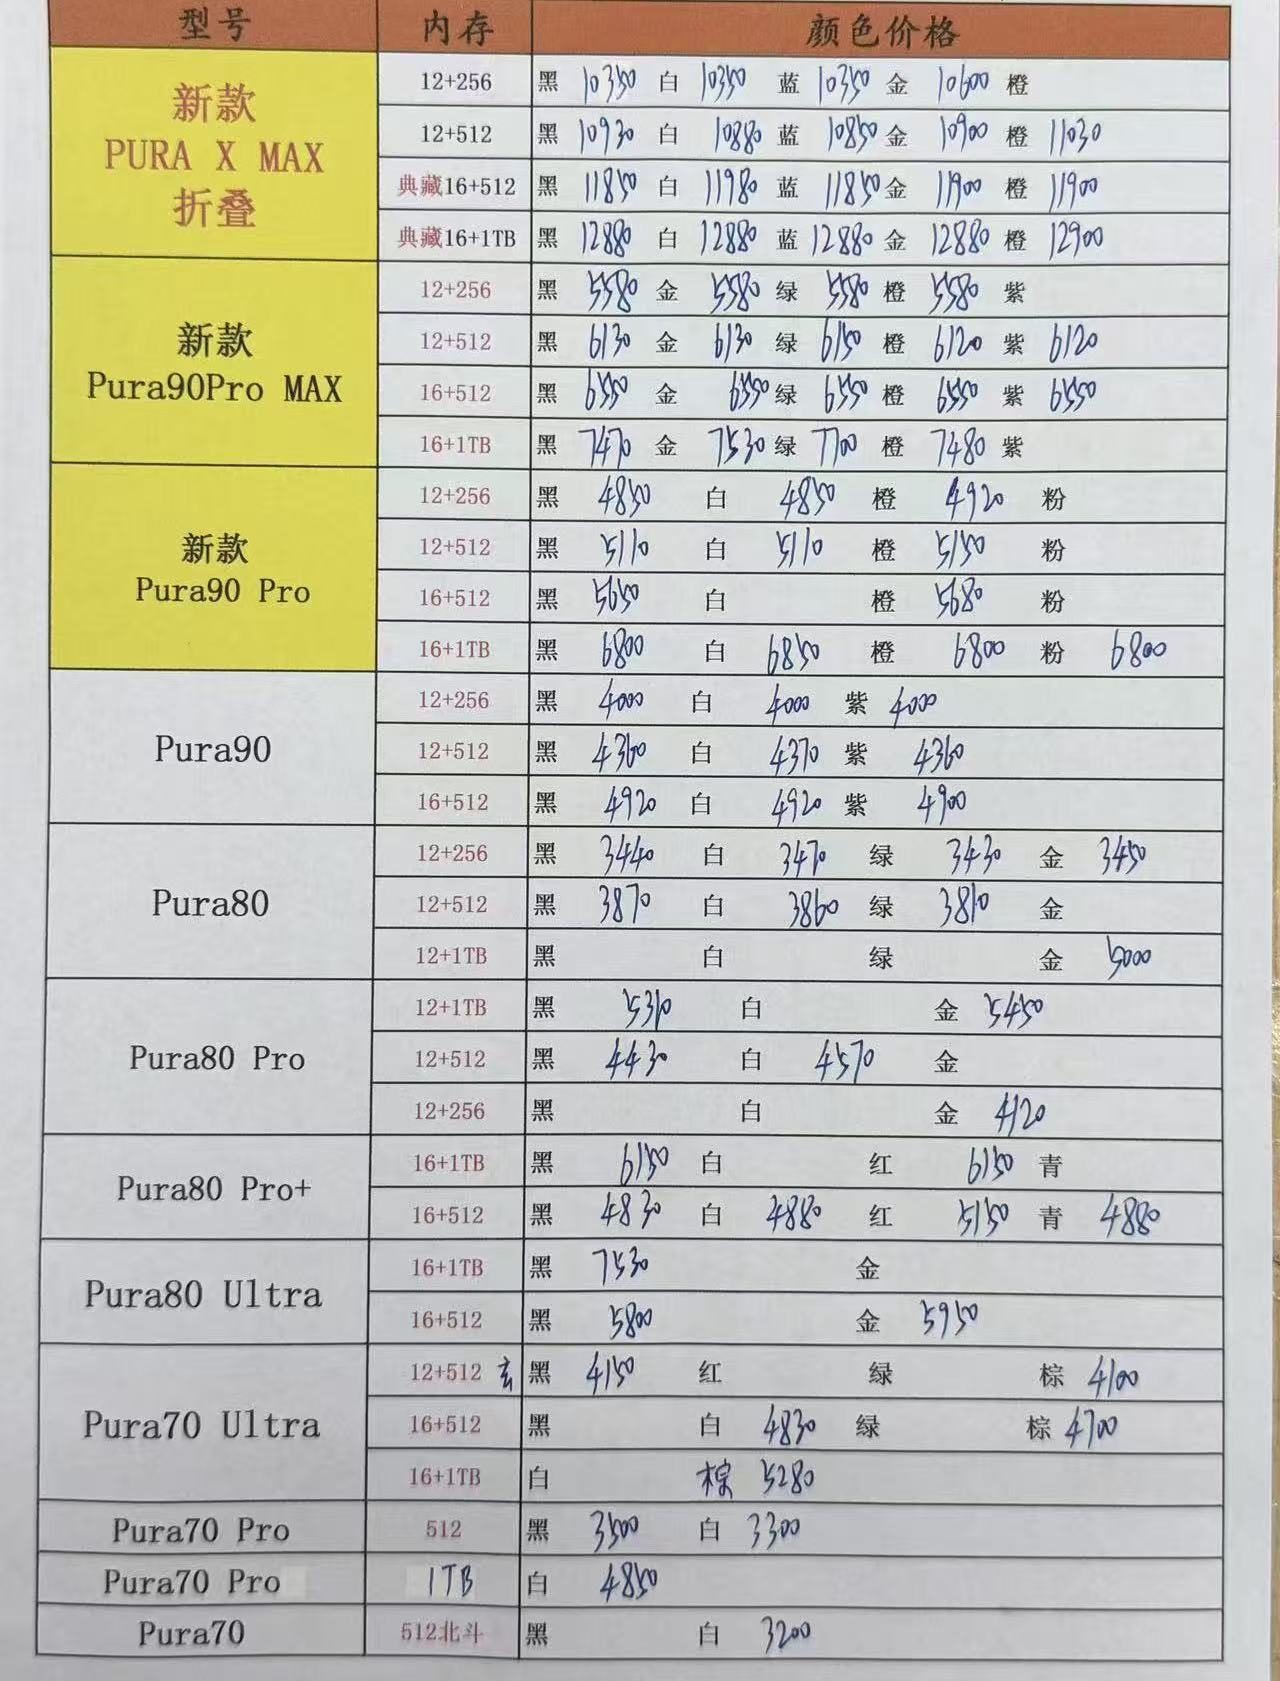 型号 内存 颜色价格
新款
PURA X MAX
折叠
12+256 黑 10350 白 10350 蓝 10350 金 10600 橙
12+512 黑 10930 白 10880 蓝 10850 金 10900 橙 11030
典藏16+512 黑 11850 白 11980 蓝 11850 金 11900 橙 11900
典藏16+1TB 黑 12880 白 12880 蓝 12880 金 12880 橙 12900
新款
Pura90Pro MAX
12+256 黑 5580 金 5580 绿 5580 橙 5580 紫
12+512 黑 6130 金 6130 绿 6150 橙 6120 紫 6120
16+512 黑 6550 金 6550 绿 6550 橙 6550 紫 6550
16+1TB 黑 7470 金 7530 绿 7700 橙 7480 紫
新款
Pura90 Pro
12+256 黑 4850 白 4850 橙 4920 粉
12+512 黑 5110 白 5110 橙 5150 粉
16+512 黑 5650 白 橙 5680 粉
16+1TB 黑 6800 白 6850 橙 6800 粉 6800
Pura90
12+256 黑 4000 白 4000 紫 4000
12+512 黑 4360 白 4370 紫 4360
16+512 黑 4920 白 4920 紫 4900
Pura80
12+256 黑 3440 白 3470 绿 3430 金 3450
12+512 黑 3870 白 3860 绿 3810 金
12+1TB 黑 白 绿 金 5000
Pura80 Pro
12+1TB 黑 5310 白 金 5450
12+512 黑 4430 白 4570 金
12+256 黑 白 金 4120
Pura80 Pro+
16+1TB 黑 6150 白 红 6150 青
16+512 黑 4830 白 4880 红 5150 青 4880
Pura80 Ultra
16+1TB 黑 7530 金
16+512 黑 5800 金 5950
Pura70 Ultra
12+512 玄 黑 4150 红 绿 棕 4100
16+512 黑 白 4830 绿 棕 4700
16+1TB 白 棕 5280
Pura70 Pro 512 黑 3500 白 3300
Pura70 Pro 1TB 白 4850
Pura70 512北斗 黑 白 3200